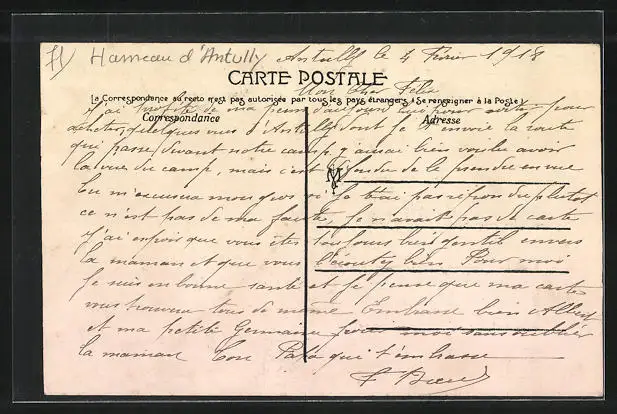 71 Hameau d'Antully Antully le 4 Février 1918
CARTE POSTALE
Mon Cher Felix
La Correspondance au recto n'est pas autorisée par tous les pays étrangers (Se renseigner à la Poste)
J'ai profité de ma pour
Correspondance Adresse
acheter quelques vues d'Antully dont je t'envoie la route
qui passe devant notre camp, j'aurai bien voulu avoir
la vue du camp, mais c'est défendu de le prendre en vue
Tu m'excusera mon gros si je t'ai pas répondu plutot
ce n'est pas de ma faute, je n'avait pas de carte
J'ai espoir que vous êtes toujours bien gentil envers
la maman et que vous l'écoutez bien Pour moi
Je suis en bonne santé et je pense que ma carte
vous trouvera tous de même Embrasse bien Albert
et ma petite Germaine pour moi sans oublier
la maman Ton Papa qui t'embrasse